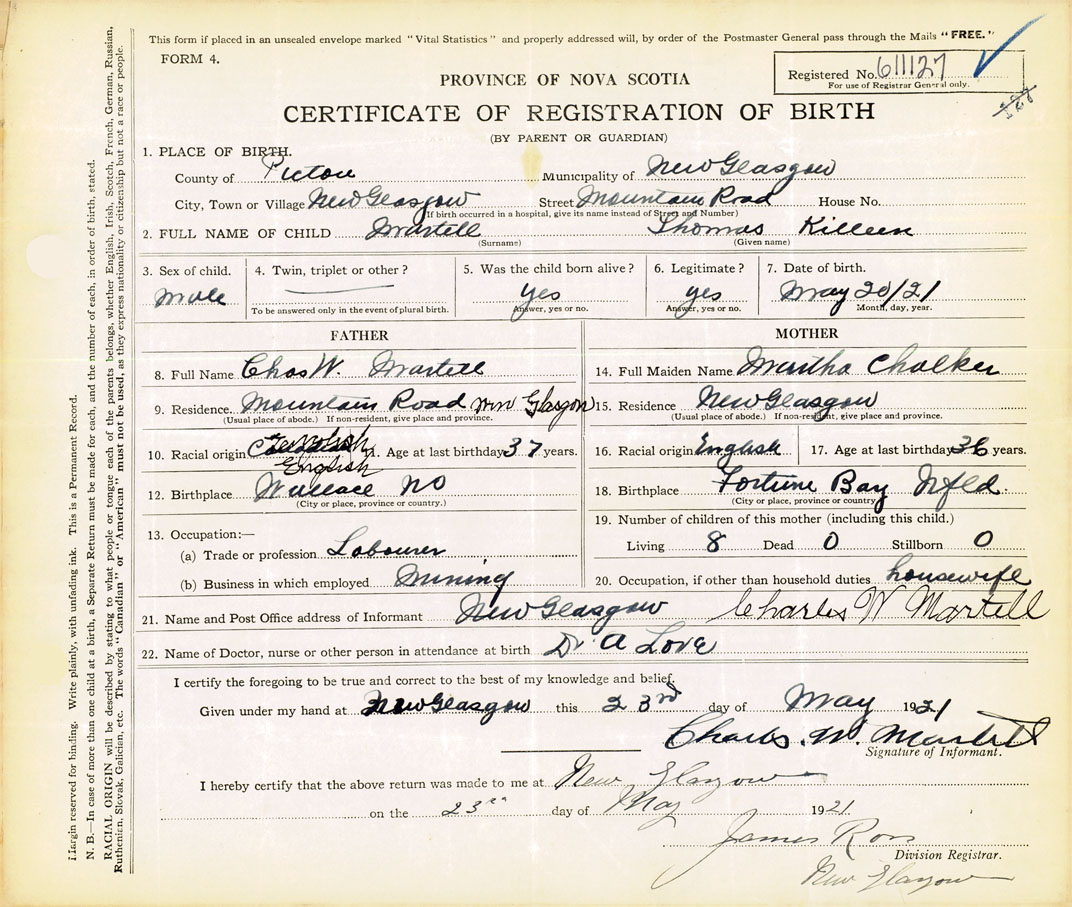 This form if placed in an unsealed envelope marked "Vital Statistics" and properly addressed will, by order of the Postmaster General pass through the Mails "FREE."
FORM 4.
PROVINCE OF NOVA SCOTIA
Registered No. 611127
For use of Registrar General only.
127
CERTIFICATE OF REGISTRATION OF BIRTH
(BY PARENT OR GUARDIAN)
1. PLACE OF BIRTH.
County of Pictou Municipality of New Glasgow
City, Town or Village New Glasgow Street Mountain Road House No.
(If birth occurred in a hospital, give its name instead of Street and Number)
2. FULL NAME OF CHILD Martell Thomas Killeen
(Surname) (Given name)
3. Sex of child. 4. Twin, triplet or other? 5. Was the child born alive? 6. Legitimate? 7. Date of birth.
Male yes yes May 20/21
To be answered only in the event of plural birth. Answer, yes or no. Answer, yes or no. Month, day, year.
FATHER
8. Full Name Chas W. Martell
9. Residence Mountain Road New Glasgow
(Usual place of abode.) If non-resident, give place and province.
10. Racial origin English 11. Age at last birthday 37 years.
12. Birthplace Wallace NS
(City or place, province or country.)
13. Occupation:—
(a) Trade or profession Labourer
(b) Business in which employed Mining
MOTHER
14. Full Maiden Name Martha Chalker
15. Residence New Glasgow
(Usual place of abode.) If non-resident, give place and province.
16. Racial origin English 17. Age at last birthday 36 years.
18. Birthplace Fortune Bay Nfld
(City or place, province or country)
19. Number of children of this mother (including this child.)
Living 8 Dead 0 Stillborn 0
20. Occupation, if other than household duties housewife
21. Name and Post Office address of Informant New Glasgow Charles W Martell
22. Name of Doctor, nurse or other person in attendance at birth Dr A Love
I certify the foregoing to be true and correct to the best of my knowledge and belief.
Given under my hand at New Glasgow this 23rd day of May 1921
Charles. W. Martell
Signature of Informant.
I hereby certify that the above return was made to me at New Glasgow
on the 23rd day of May 1921
James Ross
Division Registrar.
New Glasgow
Margin reserved for binding. Write plainly, with unfading ink. This is a Permanent Record.
N. B.—In case of more than one child at a birth, a Separate Return must be made for each, and the number of each, in order of birth, stated.
RACIAL ORIGIN will be described by stating to what people or tongue each of the parents belongs, whether English, Irish, Scotch, French, German, Russian,
Ruthenian, Slovak, Galician, etc. The words "Canadian" or "American" must not be used, as they express nationality or citizenship but not a race or people.